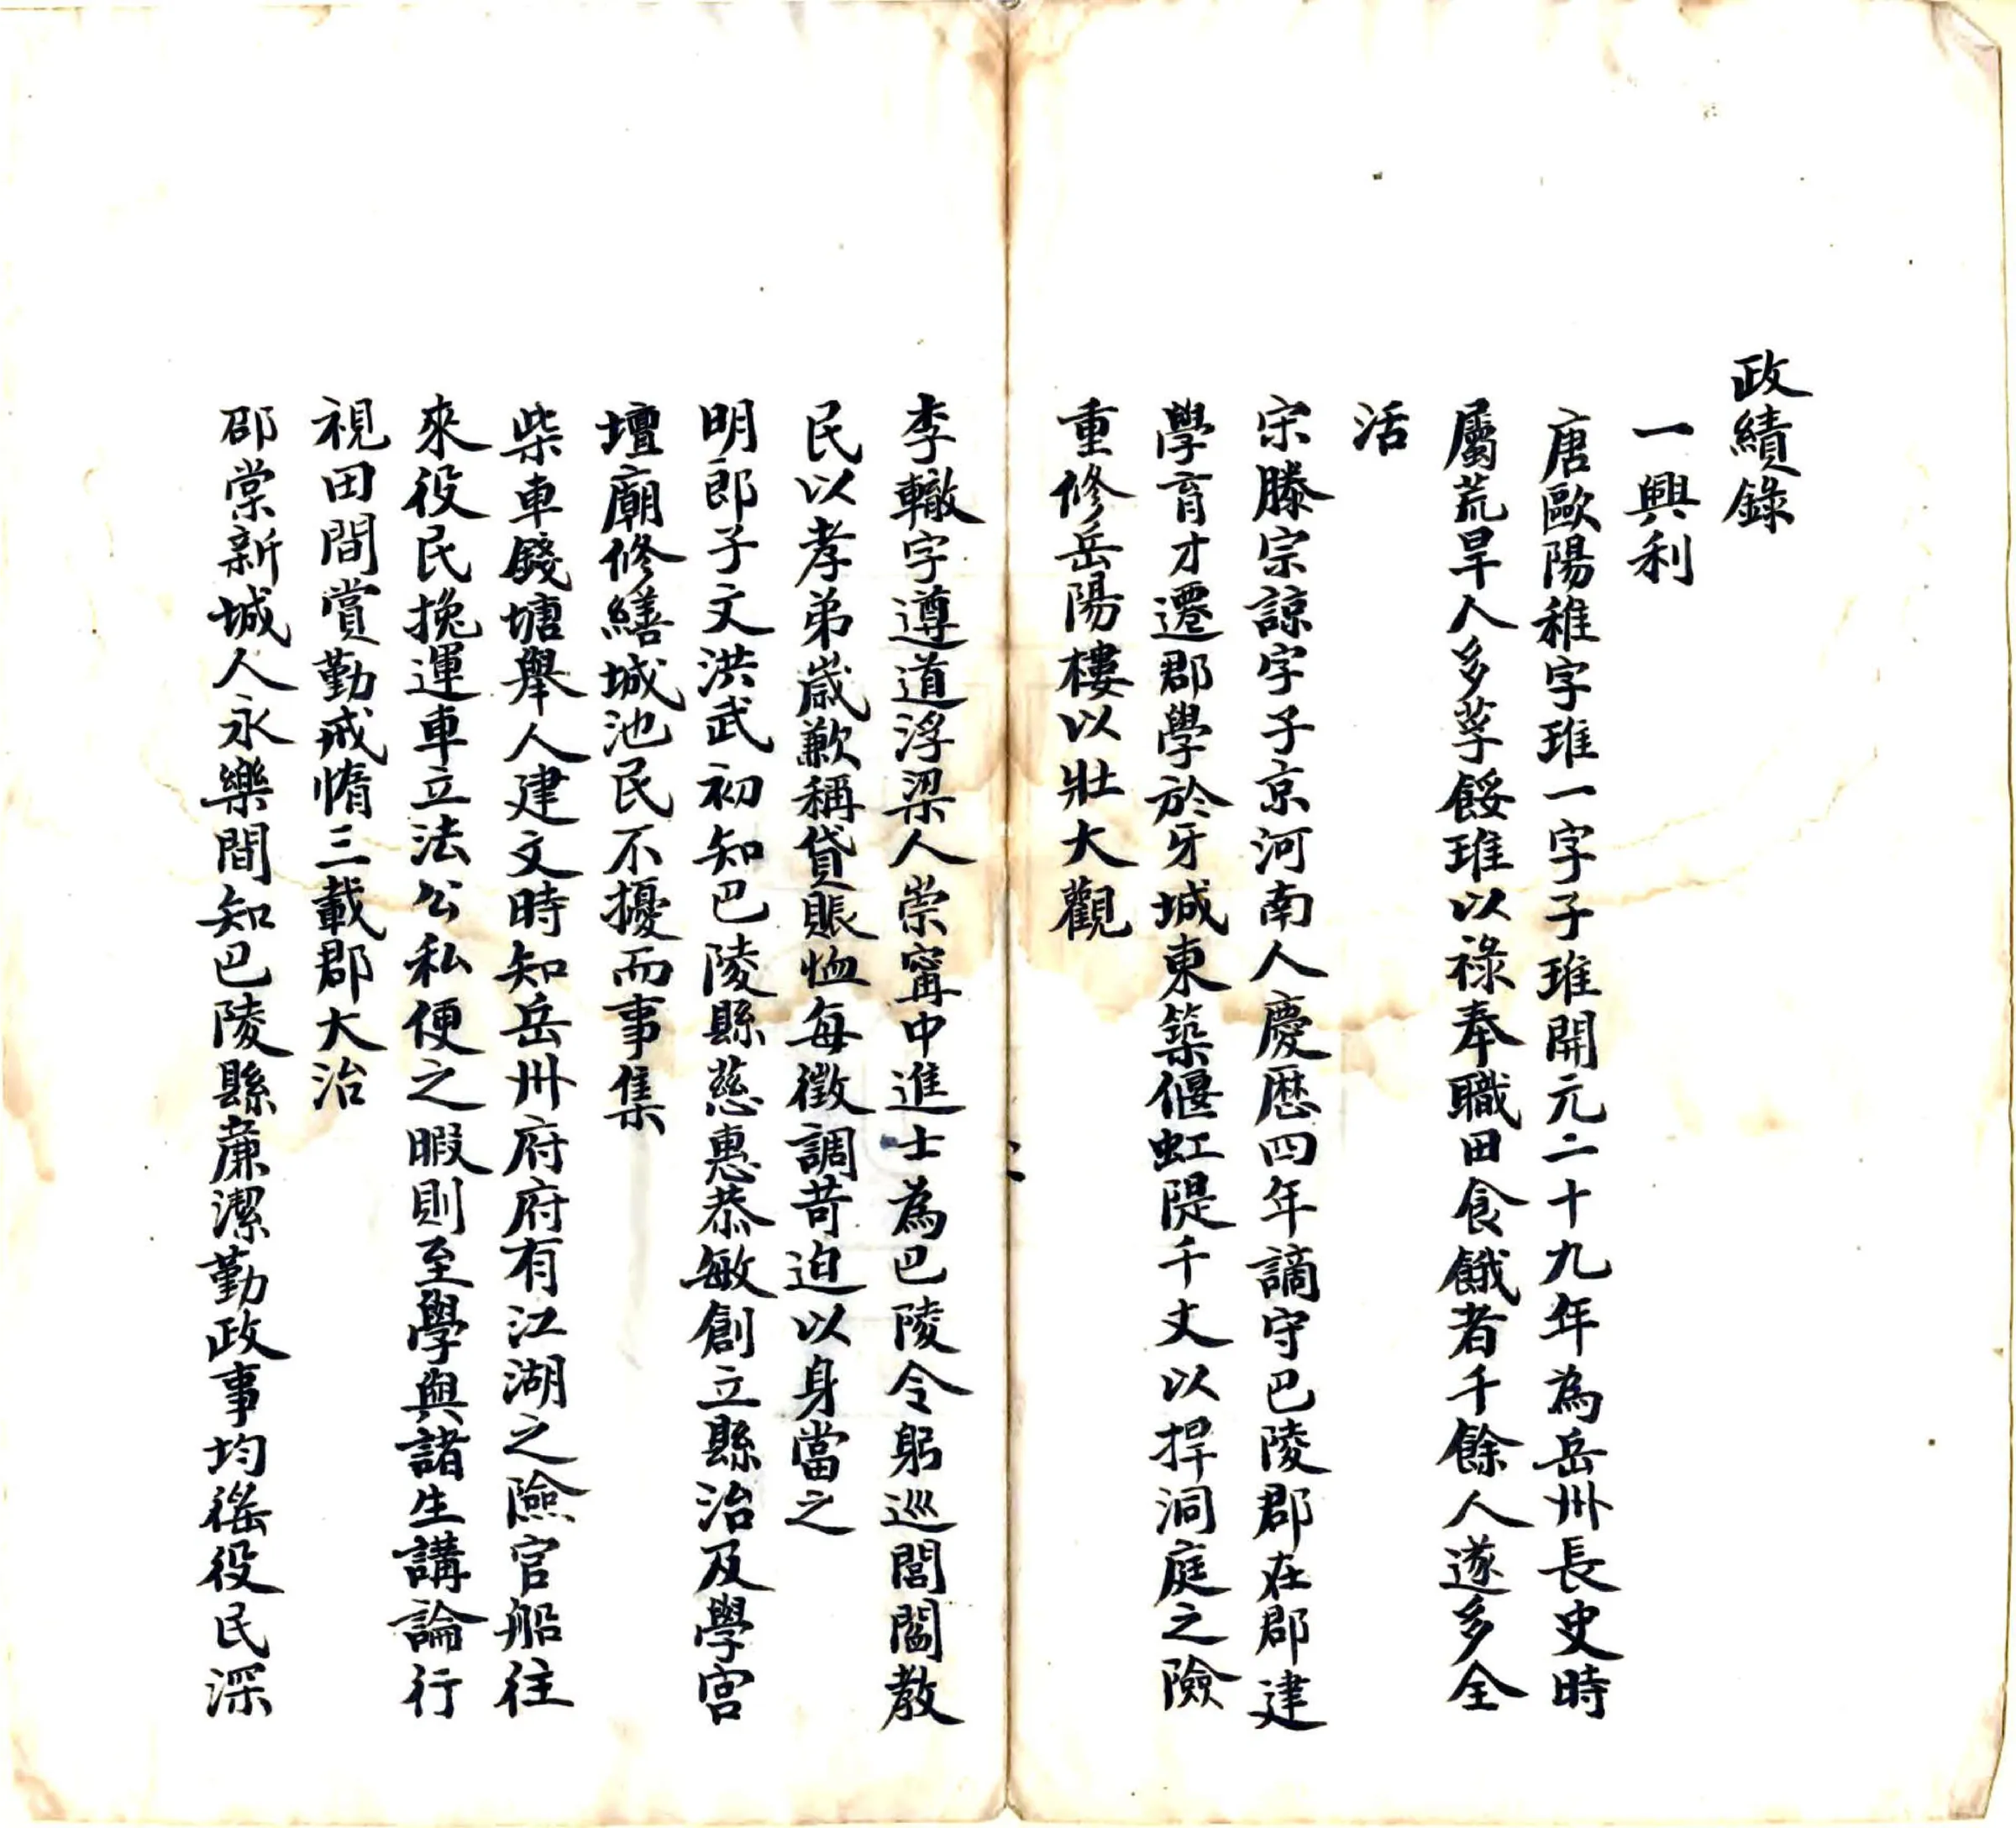 政績錄
一興利
唐歐陽稚字琟一字子琟開元二十九年為岳州長史時
屬荒旱人多莩餒琟以祿奉職田食餓者千餘人遂多全
活
宋滕宗諒字子京河南人慶歷四年謫守巴陵郡在郡建
學育才遷郡學於牙城東築偃虹隄千丈以捍洞庭之險
重修岳陽樓以壯大觀
李轍字遵道浮梁人崇寗中進士為巴陵令躬巡閭閻教
民以孝弟歲歉稱貸賬恤每徵調苛迫以身當之
明郎子文洪武初知巴陵縣慈惠恭敏創立縣治及學宮
壇廟修繕城池民不擾而事集
柴車錢塘舉人建文時知岳州府府有江湖之險官船往
來役民挽運車立法公私便之暇則至學與諸生講論行
視田間賞勤戒惰三載郡大治
邵棠新城人永樂間知巴陵縣亷潔勤政事均徭役民深